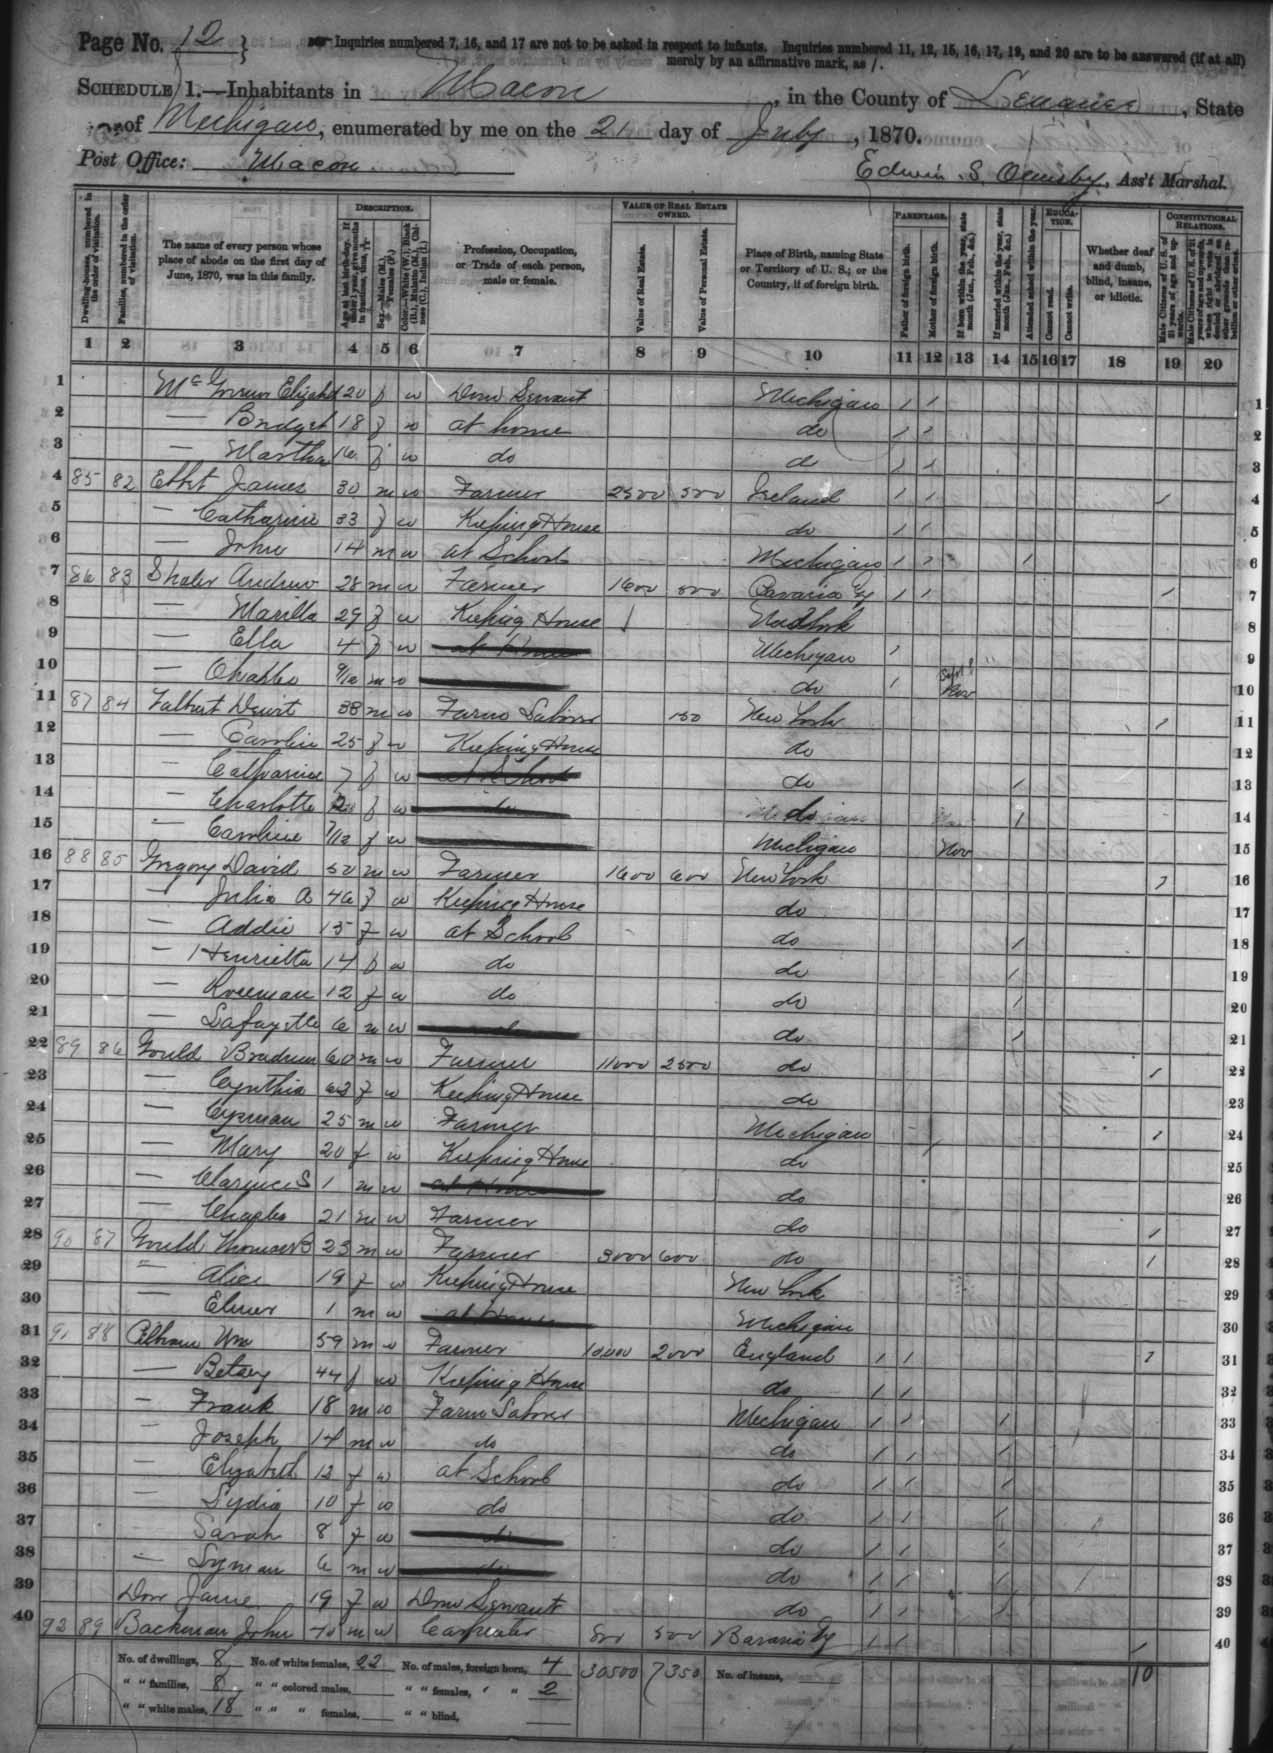 Page No. 12 } Inquiries numbered 7, 16, and 17 are not to be asked in respect to infants. Inquiries numbered 11, 12, 15, 16, 17, 19, and 20 are to be answered (if at all)
merely by an affirmative mark, as /.
SCHEDULE 1.—Inhabitants in Macon, in the County of Lenawee, State
of Michigan, enumerated by me on the 21 day of July, 1870.
Post Office: Macon
Edwin S. Ormsby, Ass't Marshal.
Dwelling-houses, numbered in the order of visitation.
Families, numbered in the order of visitation.
The name of every person whose place of abode on the first day of June, 1870, was in this family.
DESCRIPTION.
Profession, Occupation, or Trade of each person, male or female.
VALUE OF REAL ESTATE OWNED.
Value of Real Estate.
Value of Personal Estate.
Place of Birth, naming State or Territory of U. S.; or the Country, if of foreign birth.
PARENTAGE.
Father of foreign birth.
Mother of foreign birth.
If born within the year, state month (Jan., Feb., &c.)
If married within the year, state month (Jan., Feb., &c.)
EDUCATION.
Attended school within the year.
Cannot read.
Cannot write.
Whether deaf and dumb, blind, insane, or idiotic.
CONSTITUTIONAL RELATIONS.
1 2 3 4 5 6 7 8 9 10 11 12 13 14 15 16 17 18 19 20
1 Elizabeth 20 f w Dom Servant Michigan / / 1
2 — Bridget 18 f w at home do / / 2
3 — Martha 16 f w do do / / 3
4 85 82 James 30 m w Farmer 2500 500 Ireland / / / 4
5 — Catharine 33 f w Keeping House do / / 5
6 — John 14 m w at School Michigan / / / 6
7 86 83 Shaler Andrew 28 m w Farmer 1600 500 Bavaria / / / 7
8 — Marilla 29 f w Keeping House New York 8
9 — Ella 4 f w at Home Michigan / 9
10 — Charles 9/12 m w do / Nov 10
11 87 84 Dewit 38 m w Farm Laborer 150 New York / 11
12 — Caroline 25 f w Keeping House do 12
13 — Catharine 7 f w at School do / 13
14 — Charlotte f w do do / 14
15 — Caroline 7/12 f w Michigan Nov 15
16 88 85 Gregory David 50 m w Farmer 1600 600 New York / 16
17 — Julia A 46 f w Keeping House do 17
18 — Addie 15 f w at School do / 18
19 — Henrietta 14 f w do do / 19
20 — 12 f w do do / 20
21 — Lafayette 6 m w do / 21
22 89 86 Gould 60 m w Farmer 11000 2500 do / 22
23 — Cynthia 62 f w Keeping House do 23
24 — 25 m w Farmer Michigan / 24
25 — Mary 20 f w Keeping House do 25
26 — Clarence S 1 m w at Home do 26
27 — Charles 21 m w Farmer do / 27
28 90 87 Gould Thomas B 23 m w Farmer 3000 600 do / 28
29 — Alice 19 f w Keeping House New York 29
30 — Elmer 1 m w at Home Michigan 30
31 91 88 Wm 59 m w Farmer 10000 2000 England / / / 31
32 — Betsey 44 f w Keeping House do / / 32
33 — Frank 18 m w Farm Laborer Michigan / / / 33
34 — Joseph 14 m w do do / / / 34
35 — Elizabeth 12 f w at School do / / / 35
36 — Lydia 10 f w do do / / / 36
37 — Sarah 8 f w do do / / / 37
38 — Lyman 6 m w do do / / / 38
39 Jane 19 f w Dom Servant do / / / 39
40 92 89 Backman John m w Carpenter 800 500 Bavaria / / / 40
No. of dwellings, 8 No. of white females, 22 No. of males, foreign born, 4 30500 7350 No. of insane, 10
" " families, 8 " " colored males, " " females, " " 2
" " white males, 18 " " " females, " " blind,